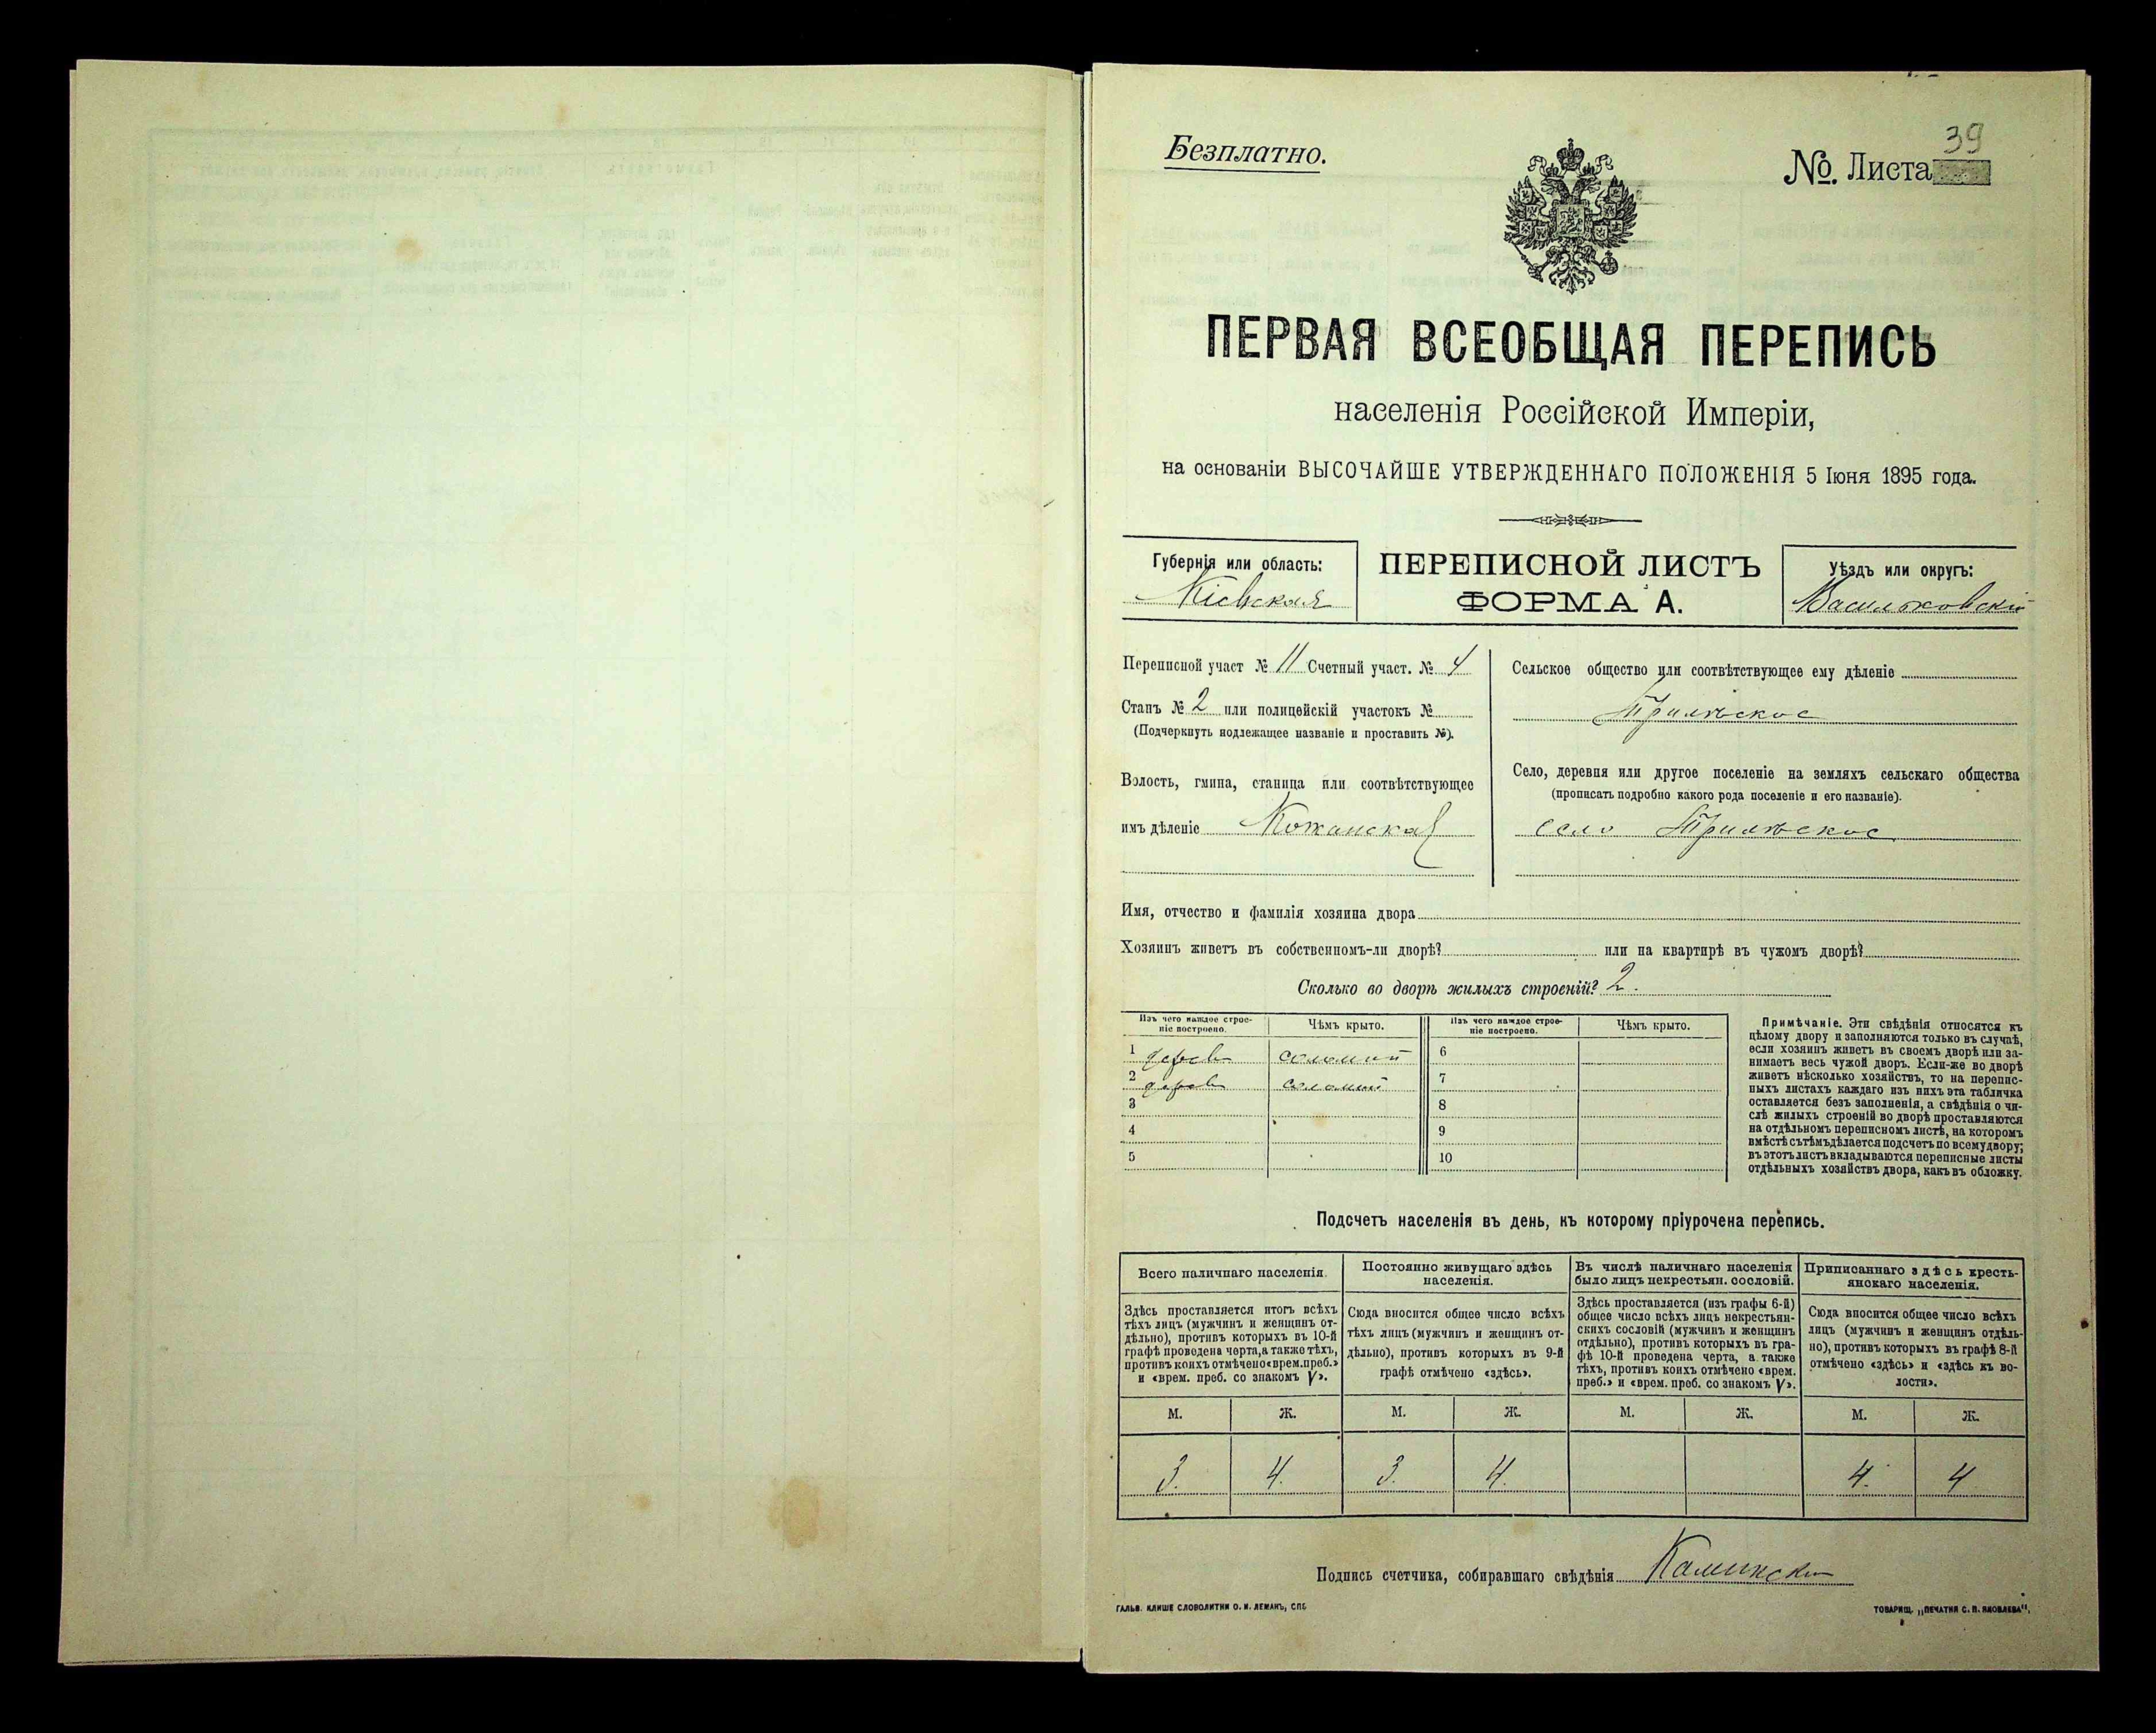 Безплатно.
№. Листа 39
ПЕРВАЯ ВСЕОБЩАЯ ПЕРЕПИСЬ
населенія Россійской Имперіи,
на основаніи ВЫСОЧАЙШЕ УТВЕРЖДЕННАГО ПОЛОЖЕНІЯ 5 Іюня 1895 года.
Губернія или область:
Кіевская
ПЕРЕПИСНОЙ ЛИСТЪ
ФОРМА А.
Уѣздъ или округъ:
Васильковскій
Переписной участ № 11 Счетный участ. № 4
Станъ № 2 или полицейскій участокъ №
(Подчеркнуть подлежащее названіе и проставить №).
Волость, гмина, станица или соотвѣтствующее
имъ дѣленіе Кожанская
Сельское общество или соотвѣтствующее ему дѣленіе
Трилѣское
Село, деревня или другое поселеніе на земляхъ сельскаго общества
(прописать подробно какого рода поселеніе и его названіе).
село Трилѣское
Имя, отчество и фамилія хозяина двора
Хозяинъ живетъ въ собственномъ-ли дворѣ? или на квартирѣ въ чужомъ дворѣ?
Сколько во дворѣ жилыхъ строеній? 2.
Изъ чего каждое строе-
ніе построено.
Чѣмъ крыто.
Изъ чего каждое строе-
ніе построено.
Чѣмъ крыто.
1 дерев соломой 6
2 дерев соломой 7
3 8
4 9
5 10
Примѣчаніе. Эти свѣдѣнія относятся къ
цѣлому двору и заполняются только въ случаѣ,
если хозяинъ живетъ въ своемъ дворѣ или за-
нимаетъ весь чужой дворъ. Если-же во дворѣ
живетъ нѣсколько хозяйствъ, то на перепис-
ныхъ листахъ каждаго изъ нихъ эта табличка
оставляется безъ заполненія, а свѣдѣнія о чи-
слѣ жилыхъ строеній во дворѣ проставляются
на отдѣльномъ переписномъ листѣ, на которомъ
вмѣстѣ съ тѣмъ дѣлается подсчетъ по всему двору;
въ этотъ листъ вкладываются переписные листы
отдѣльныхъ хозяйствъ двора, какъ въ обложку.
Подсчетъ населенія въ день, къ которому пріурочена перепись.
Всего наличнаго населенія.
Здѣсь проставляется итогъ всѣхъ
тѣхъ лицъ (мужчинъ и женщинъ от-
дѣльно), противъ которыхъ въ 10-й
графѣ проведена черта, а также тѣхъ,
противъ коихъ отмѣчено «врем. преб.»
и «врем. преб. со знакомъ V».
Постоянно живущаго здѣсь
населенія.
Сюда вносится общее число всѣхъ
тѣхъ лицъ (мужчинъ и женщинъ от-
дѣльно), противъ которыхъ въ 9-й
графѣ отмѣчено «здѣсь».
Въ числѣ наличнаго населенія
было лицъ некрестьян. сословій.
Здѣсь проставляется (изъ графы 6-й)
общее число всѣхъ лицъ некрестьян-
скихъ сословій (мужчинъ и женщинъ
отдѣльно), противъ которыхъ въ гра-
фѣ 10-й проведена черта, а также
тѣхъ, противъ коихъ отмѣчено «врем.
преб.» и «врем. преб. со знакомъ V».
Приписаннаго здѣсь кресть-
янскаго населенія.
Сюда вносится общее число всѣхъ
лицъ (мужчинъ и женщинъ отдѣль-
но), противъ которыхъ въ графѣ 8-й
отмѣчено «здѣсь» и «здѣсь къ во-
лости».
М. Ж. М. Ж. М. Ж. М. Ж.
3. 4. 3. 4. 4. 4
Подпись счетчика, собиравшаго свѣдѣнія Камински
ГАЛЬВ. КЛИШЕ СЛОВОЛИТНИ О. И. ЛЕМАНЪ, СПБ
ТОВАРИЩ. „ПЕЧАТНЯ С. П. ЯКОВЛЕВА",